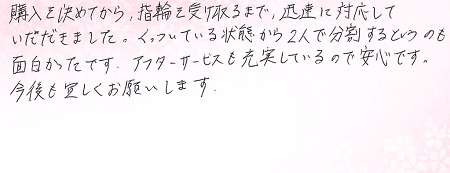 購入を決めてから、指輪を受け取るまで、迅速に対応して
いただきました。くっついている状態から2人で分割するというのも
面白かったです. アフターサービスも充実しているので安心です。
今後も宜しくお願いします.